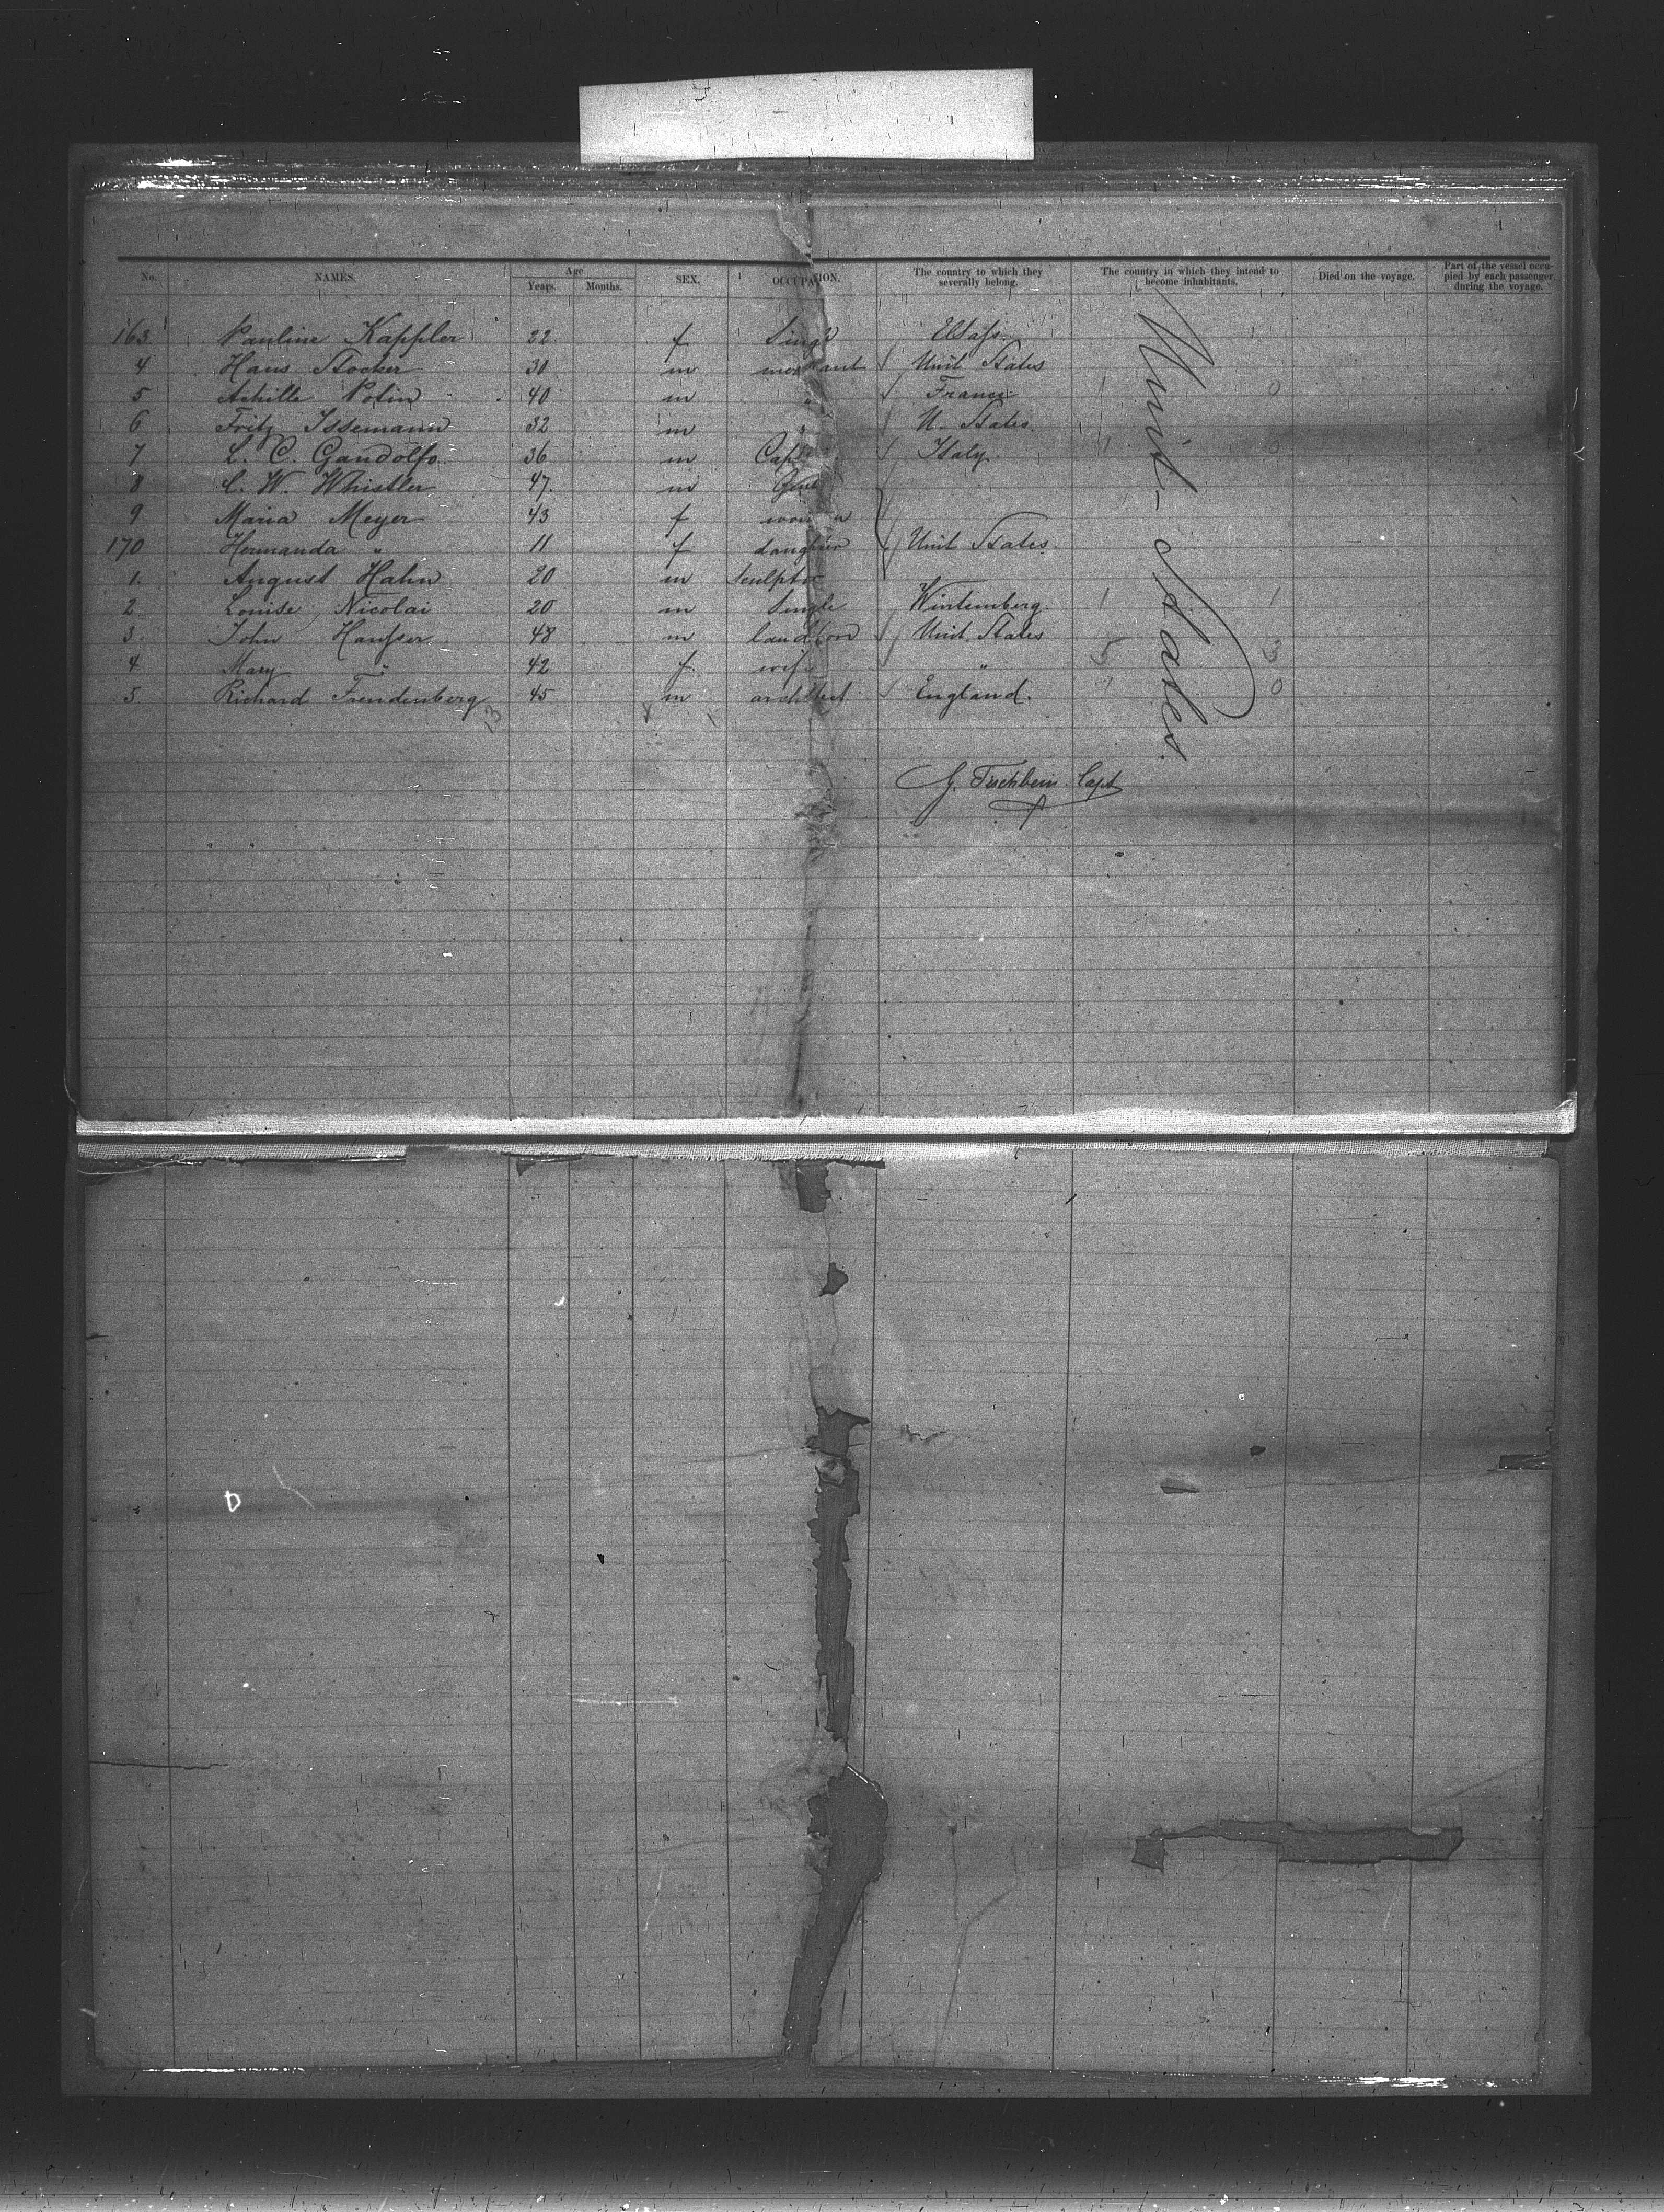 No. NAMES. Age Years. Months. SEX. OCCUPATION. The country to which they severally belong. The country in which they intend to become inhabitants. Died on the voyage. Part of the vessel occupied by each passenger during the voyage.
163 Pauline Kappler 22 f Single Elsass
4 Hans Stocker 30 m merchant Unit States
5 Achille Potin 40 m " France 1 0
6 Fritz Issemann 32 m " U. States
7 L. C. Gandolfo 36 m Capt Italy 1 0
8 C. W. Whistler 47 m Gent
9 Maria Meyer 43 f woman
170 Hermanda " 11 f daughter Unit States
1. August Hahn 20 m Sculptor
2 Louise Nicolai 20 m Single Wirtemberg. 1 1
3. John Hausser 48 m landlord Unit. States
4 Mary " 42 f. wife " 5 3
5. Richard Freudenberg 45 m architect England. 1 0
13
Unit-States
G. Tischbein Capt